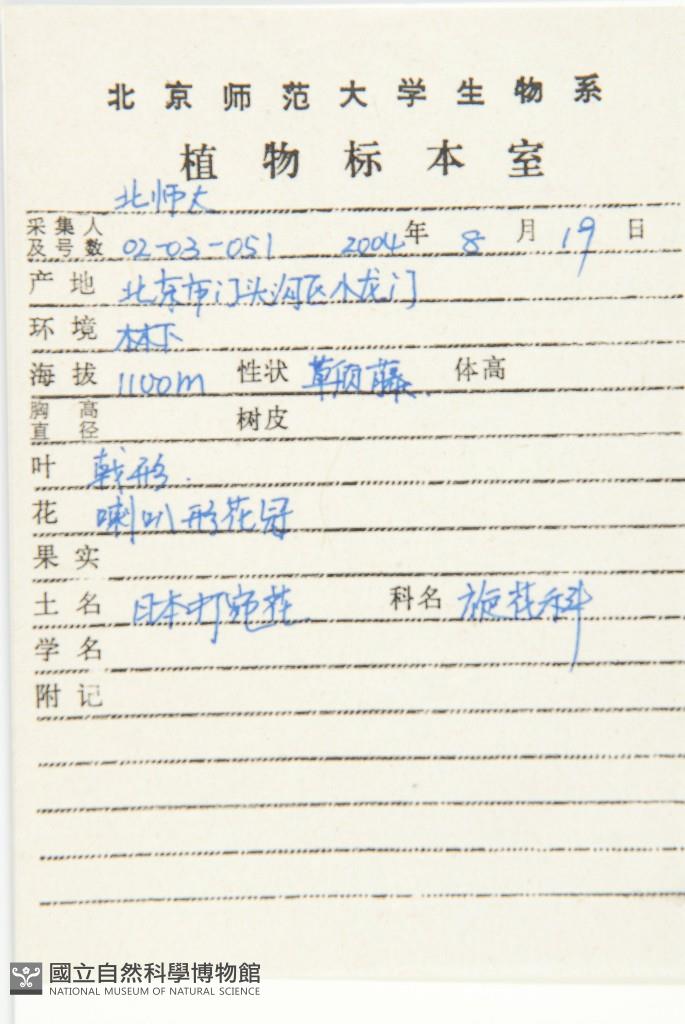 北京师范大学生物系
植物标本室
北师大
采集人及号数 02-03-051 2004年 8 月 19 日
产地 北京市门头沟区小龙门
环境 林下
海拔 1100m 性状 草质藤本 体高
胸高直径 树皮
叶 戟形.
花 喇叭形花冠
果实
土名 日本打碗花 科名 旋花科
学名
附记
國立自然科學博物館
NATIONAL MUSEUM OF NATURAL SCIENCE